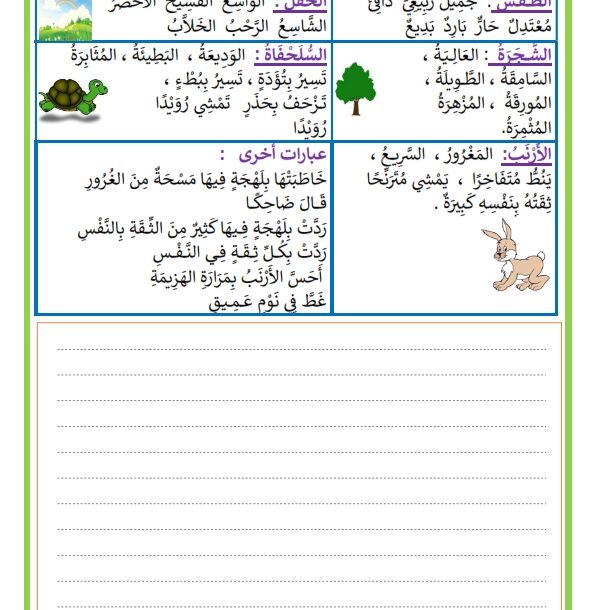 الطَّقْسُ : جَمِيلٌ رَبِيعِيٌّ دَافِئٌ
مُعْتَدِلٌ حَارٌّ بَارِدٌ بَدِيعٌ
الحَقْلُ : الوَاسِعُ الفَسِيحُ الأَخْضَرُ
الشَّاسِعُ الرَّحْبُ الخَلاَّبُ
الشَّجَرَةُ : العَالِيَةُ ،
السَّامِقَةُ ، الطَّوِيلَةُ ،
المُورِقَةُ ، المُزْهِرَةُ
المُثْمِرَةُ.
السُّلَحْفَاةُ : الوَدِيعَةُ ، البَطِيئَةُ ، المُثَابِرَةُ
تَسِيرُ بِتُؤَدَةٍ ، تَسِيرُ بِبُطْءٍ ،
تَزْحَفُ بِحَذَرٍ تَمْشِي رُوَيْدًا
رُوَيْدًا
الأَرْنَبُ: المَغْرُورُ ، السَّرِيعُ ،
يَنُطُّ مُتَفَاخِرًا ، يَمْشِي مُتَرَنِّحًا
ثِقَتُهُ بِنَفْسِهِ كَبِيرَةٌ .
عبارات أخرى :
خَاطَبَتْهَا بِلَهْجَةٍ فِيهَا مَسْحَةٌ مِنَ الغُرُورِ
قَالَ ضَاحِكًا
رَدَّتْ بِلَهْجَةٍ فِيهَا كَثِيرٌ مِنَ الثِّقَةِ بِالنَّفْسِ
رَدَّتْ بِكُلِّ ثِقَةٍ فِي النَّفْسِ
أَحَسَّ الأَرْنَبُ بِمَرَارَةِ الهَزِيمَةِ
غَطَّ فِي نَوْمٍ عَمِيقٍ